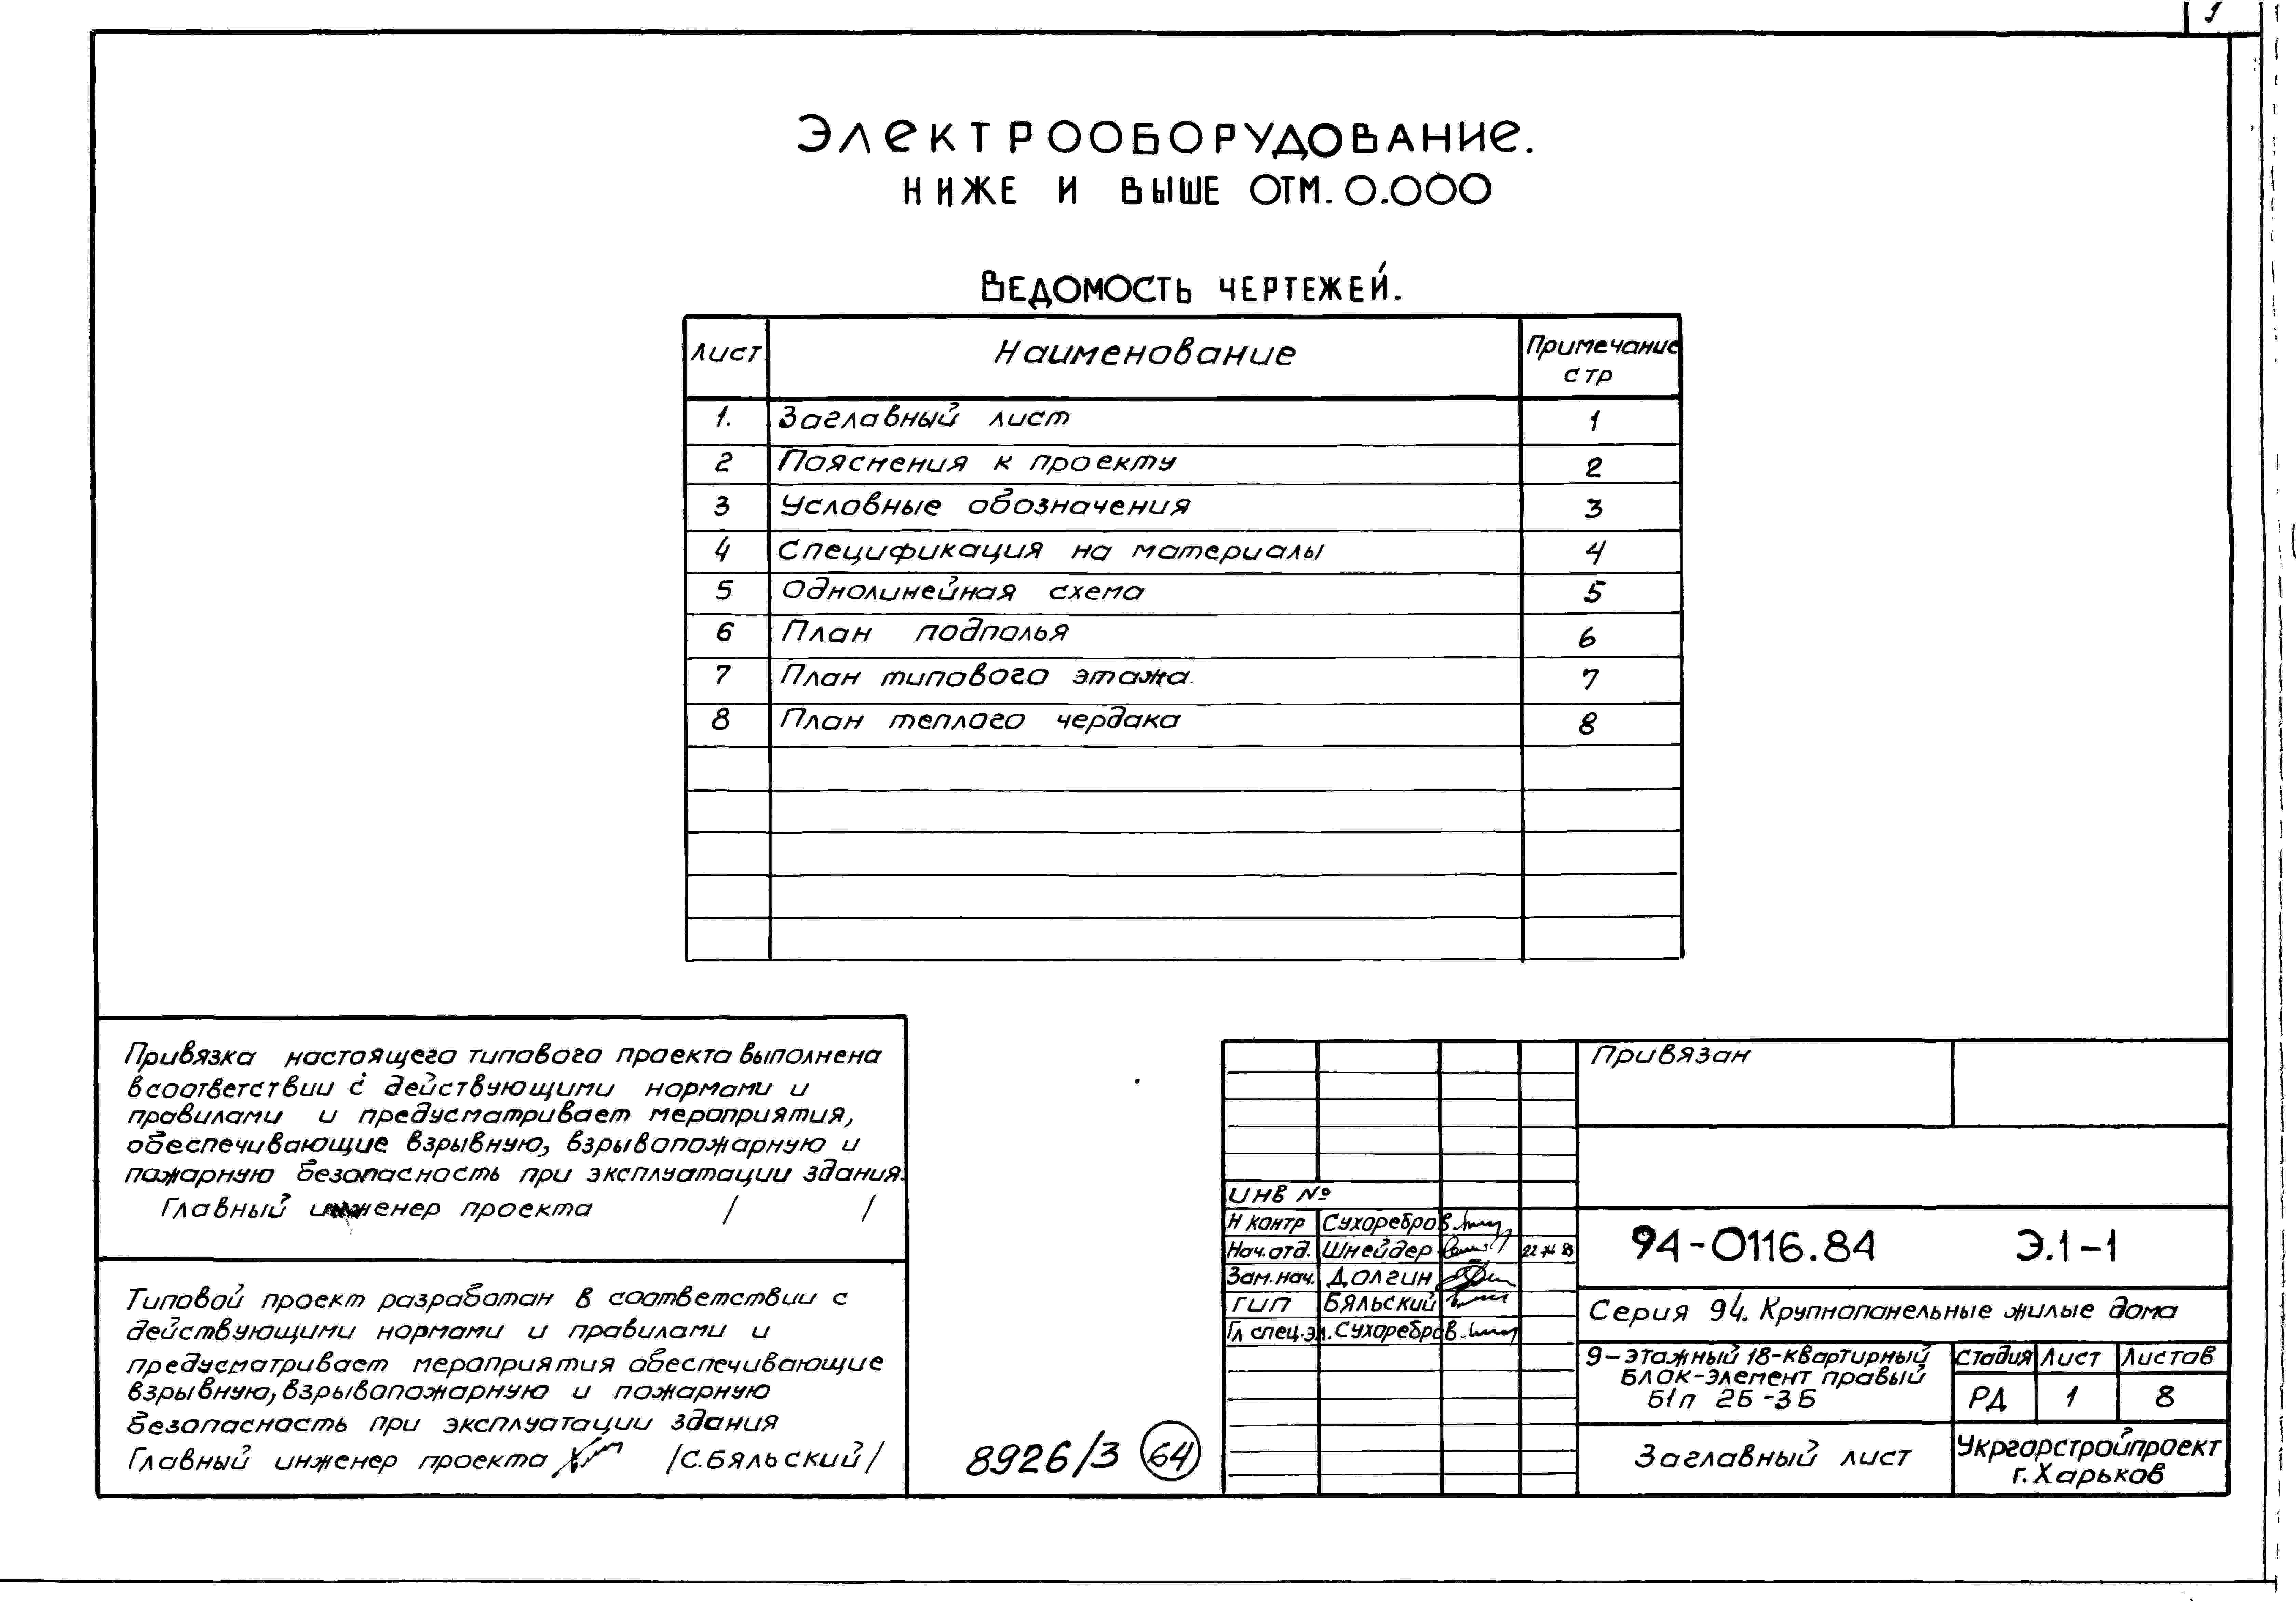 1
Электрооборудование.
ниже и выше отм. 0.000
Ведомость чертежей.
Лист Наименование Примечание стр
1. Заглавный лист 1
2 Пояснения к проекту 2
3 Условные обозначения 3
4 Спецификация на материалы 4
5 Однолинейная схема 5
6 План подполья 6
7 План типового этажа. 7
8 План теплого чердака 8
Привязка настоящего типового проекта выполнена
в соответствии с действующими нормами и
правилами и предусматривает мероприятия,
обеспечивающие взрывную, взрывопожарную и
пожарную безопасность при эксплуатации здания.
Главный инженер проекта / /
Типовой проект разработан в соответствии с
действующими нормами и правилами и
предусматривает мероприятия обеспечивающие
взрывную, взрывопожарную и пожарную
безопасность при эксплуатации здания
Главный инженер проекта /С.Бяльский/
8926/3 64
Привязан
Инв №
Н контр Сухоребров
Нач.отд. Шнейдер
Зам.нач. Долгин
ГИП Бяльский
Гл спец.эл. Сухоребров
94-0116.84 Э.1-1
Серия 94. Крупнопанельные жилые дома
9-этажный 18-квартирный
блок-элемент правый
Б1п 2Б-3Б
Стадия Лист Листов
РД 1 8
Заглавный лист
Укргорстройпроект
г.Харьков